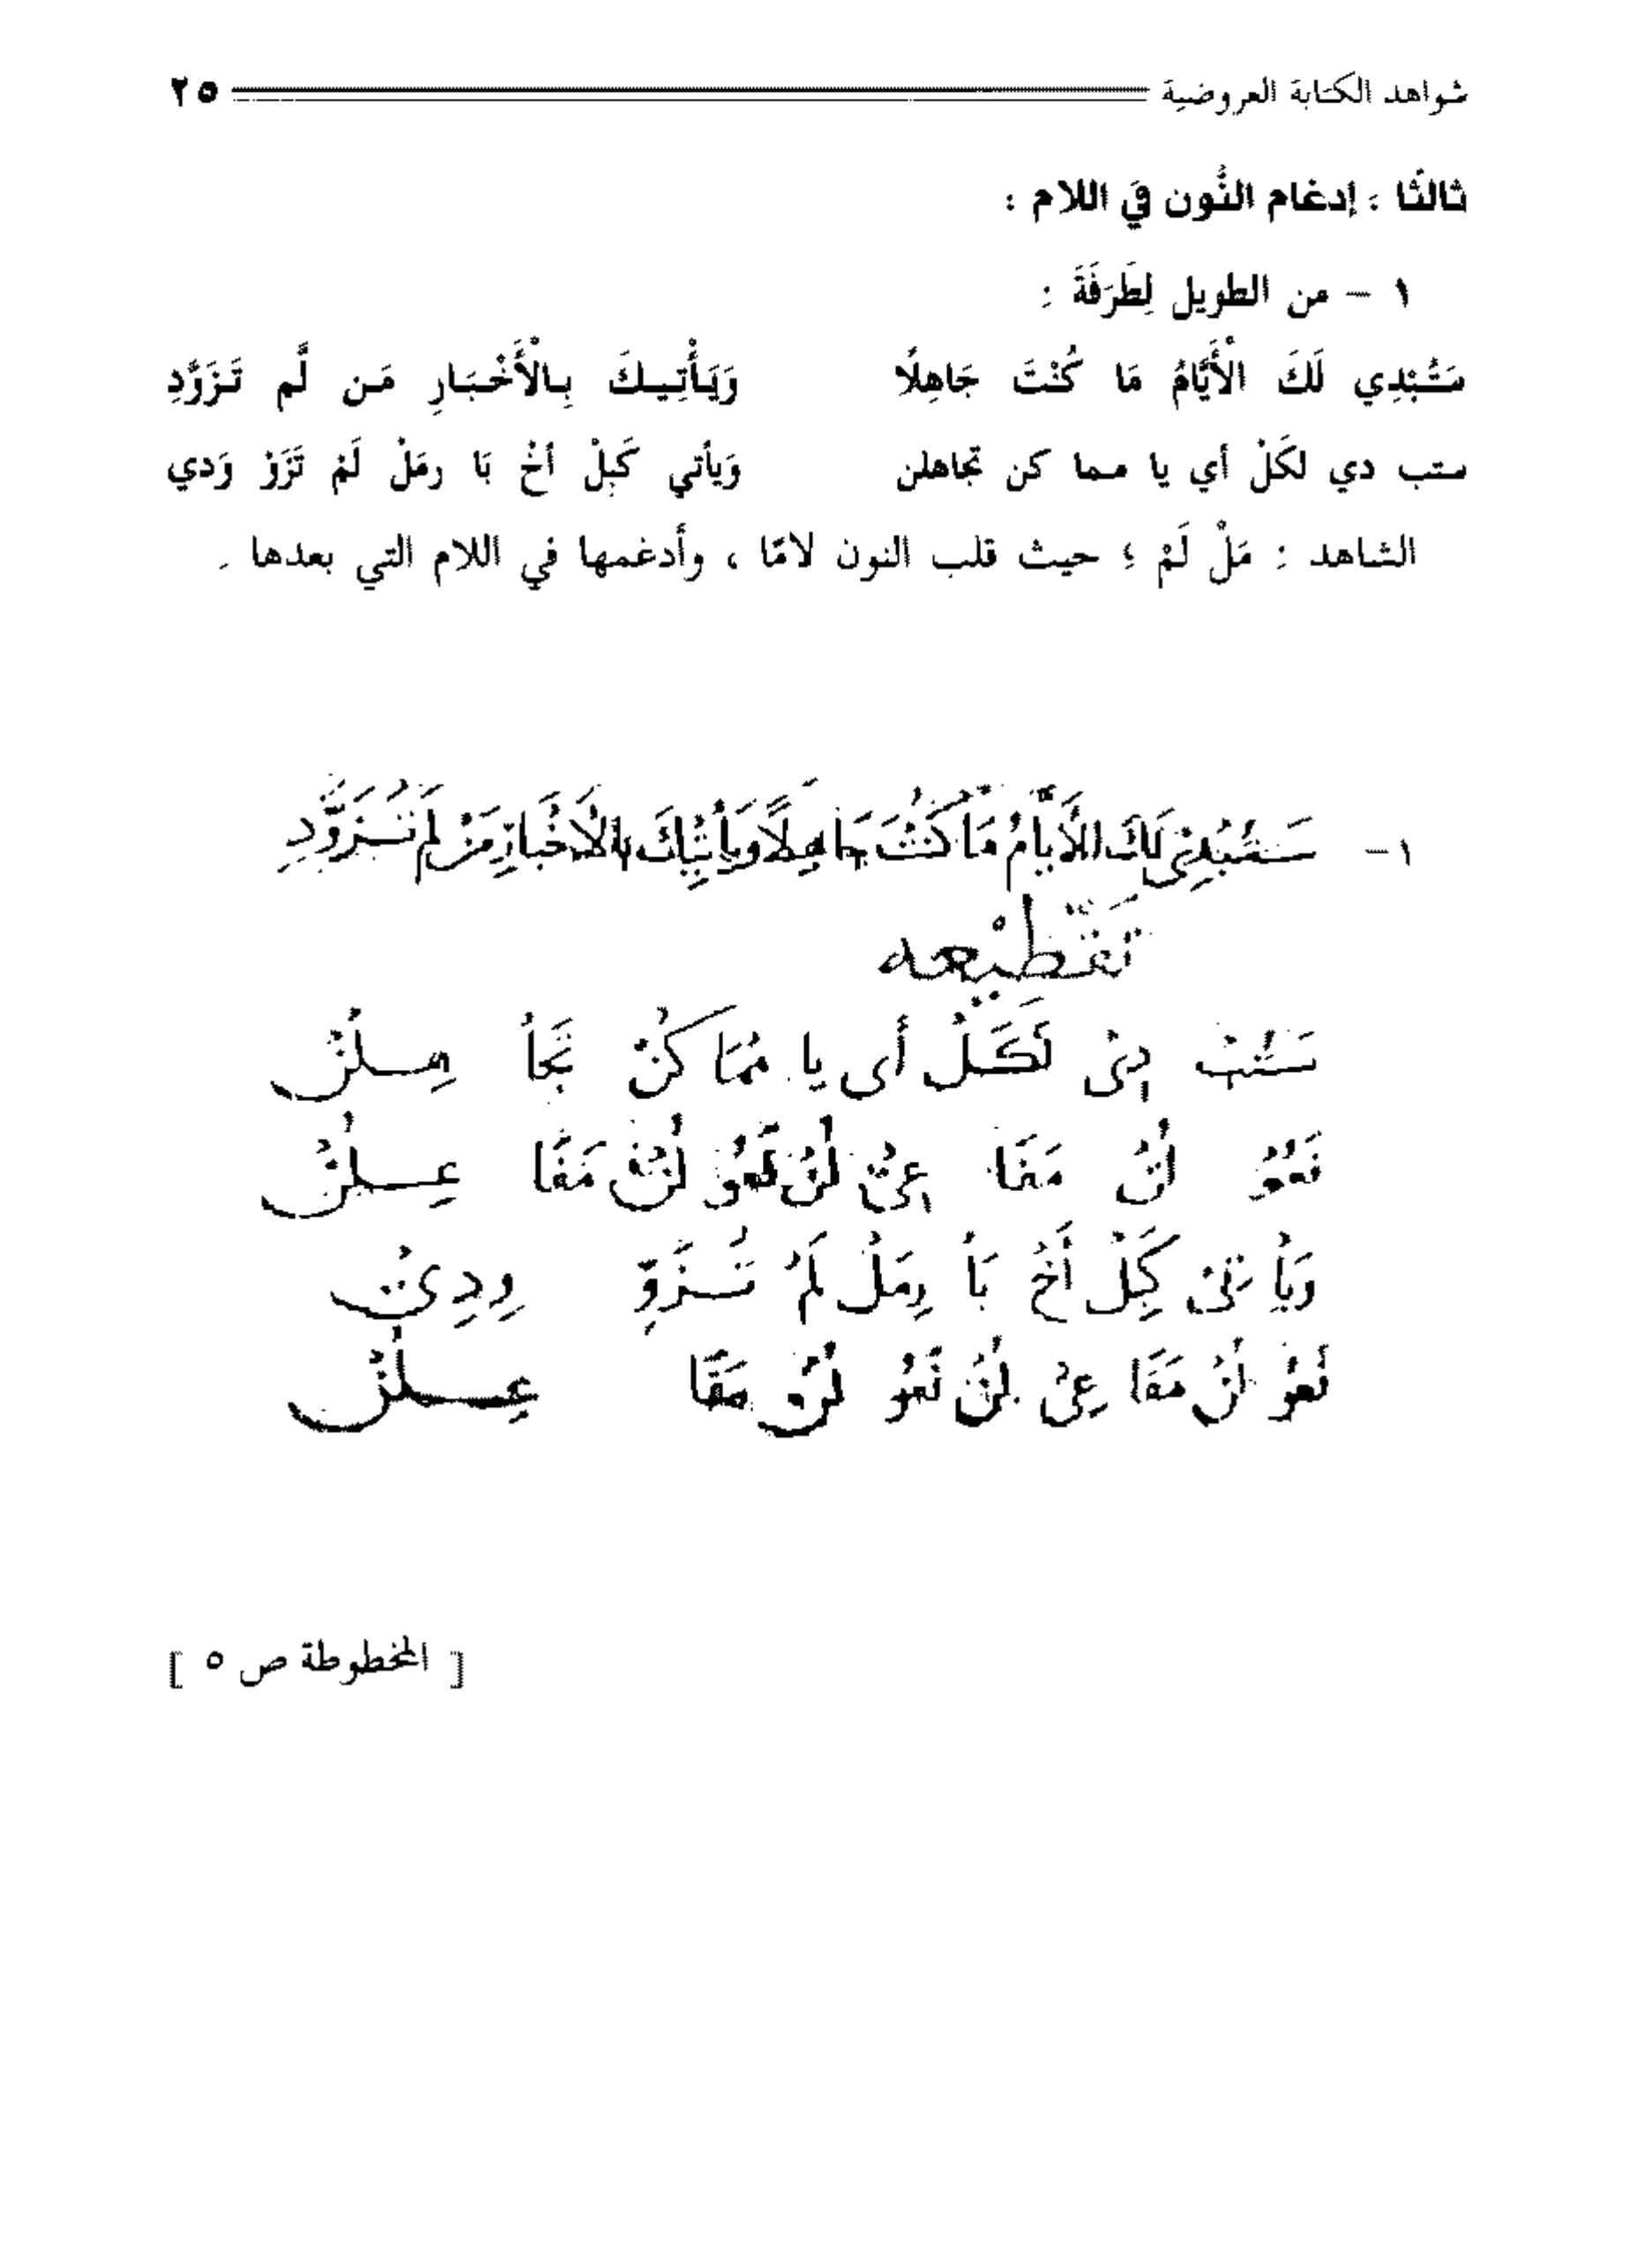 شواهد الكتابة العروضية ٢٥
ثالثًا ، إدغام النُّون في اللام :
١ – من الطويل لِطَرَفَةَ :
سَتُبْدِي لَكَ الْأَيَّامُ مَا كُنْتَ جَاهِلًا وَيَأْتِيكَ بِالْأَخْبَارِ مَن لَّم تَزَوَّدِ
ستب دي لكَلْ أي يا مما كن تجاهلن وَيأتي كَبِلْ أخْ بَا رمَلْ لَمْ تَزَوْ وَدي
الشاهد : مَلْ لَمْ ؛ حيث قلب النون لامًا ، وأدغمها في اللام التي بعدها .
١– سَتُبْدِى لَكَ الأَيَّامُ مَا كُنْتَ جَاهِلًا وَيَأْتِيكَ بِالأَخْبَارِ مَنْ لَم تُزَوَّدِ
تَقْطيْعه
سَتُبْ دِىْ لَكَلْ أَى يا مُمَا كُنْ تَجَاْ هِلُنْ
فَعُوْ لُنْ مَفَا عِىْ لُنْ فَعُوْ لُنْ مَفَا عِلُنْ
وَيَأْ تِىْ كَبِلْ أَخْ بَاْ رِمَلْ لَمْ تُزَوِّ وِدِىْ
فَعُوْ لُنْ مَفَا عِىْ لُنْ فَعُو لُنْ مَفَا عِلُنْ
[ المخطوطة ص ٥ ]